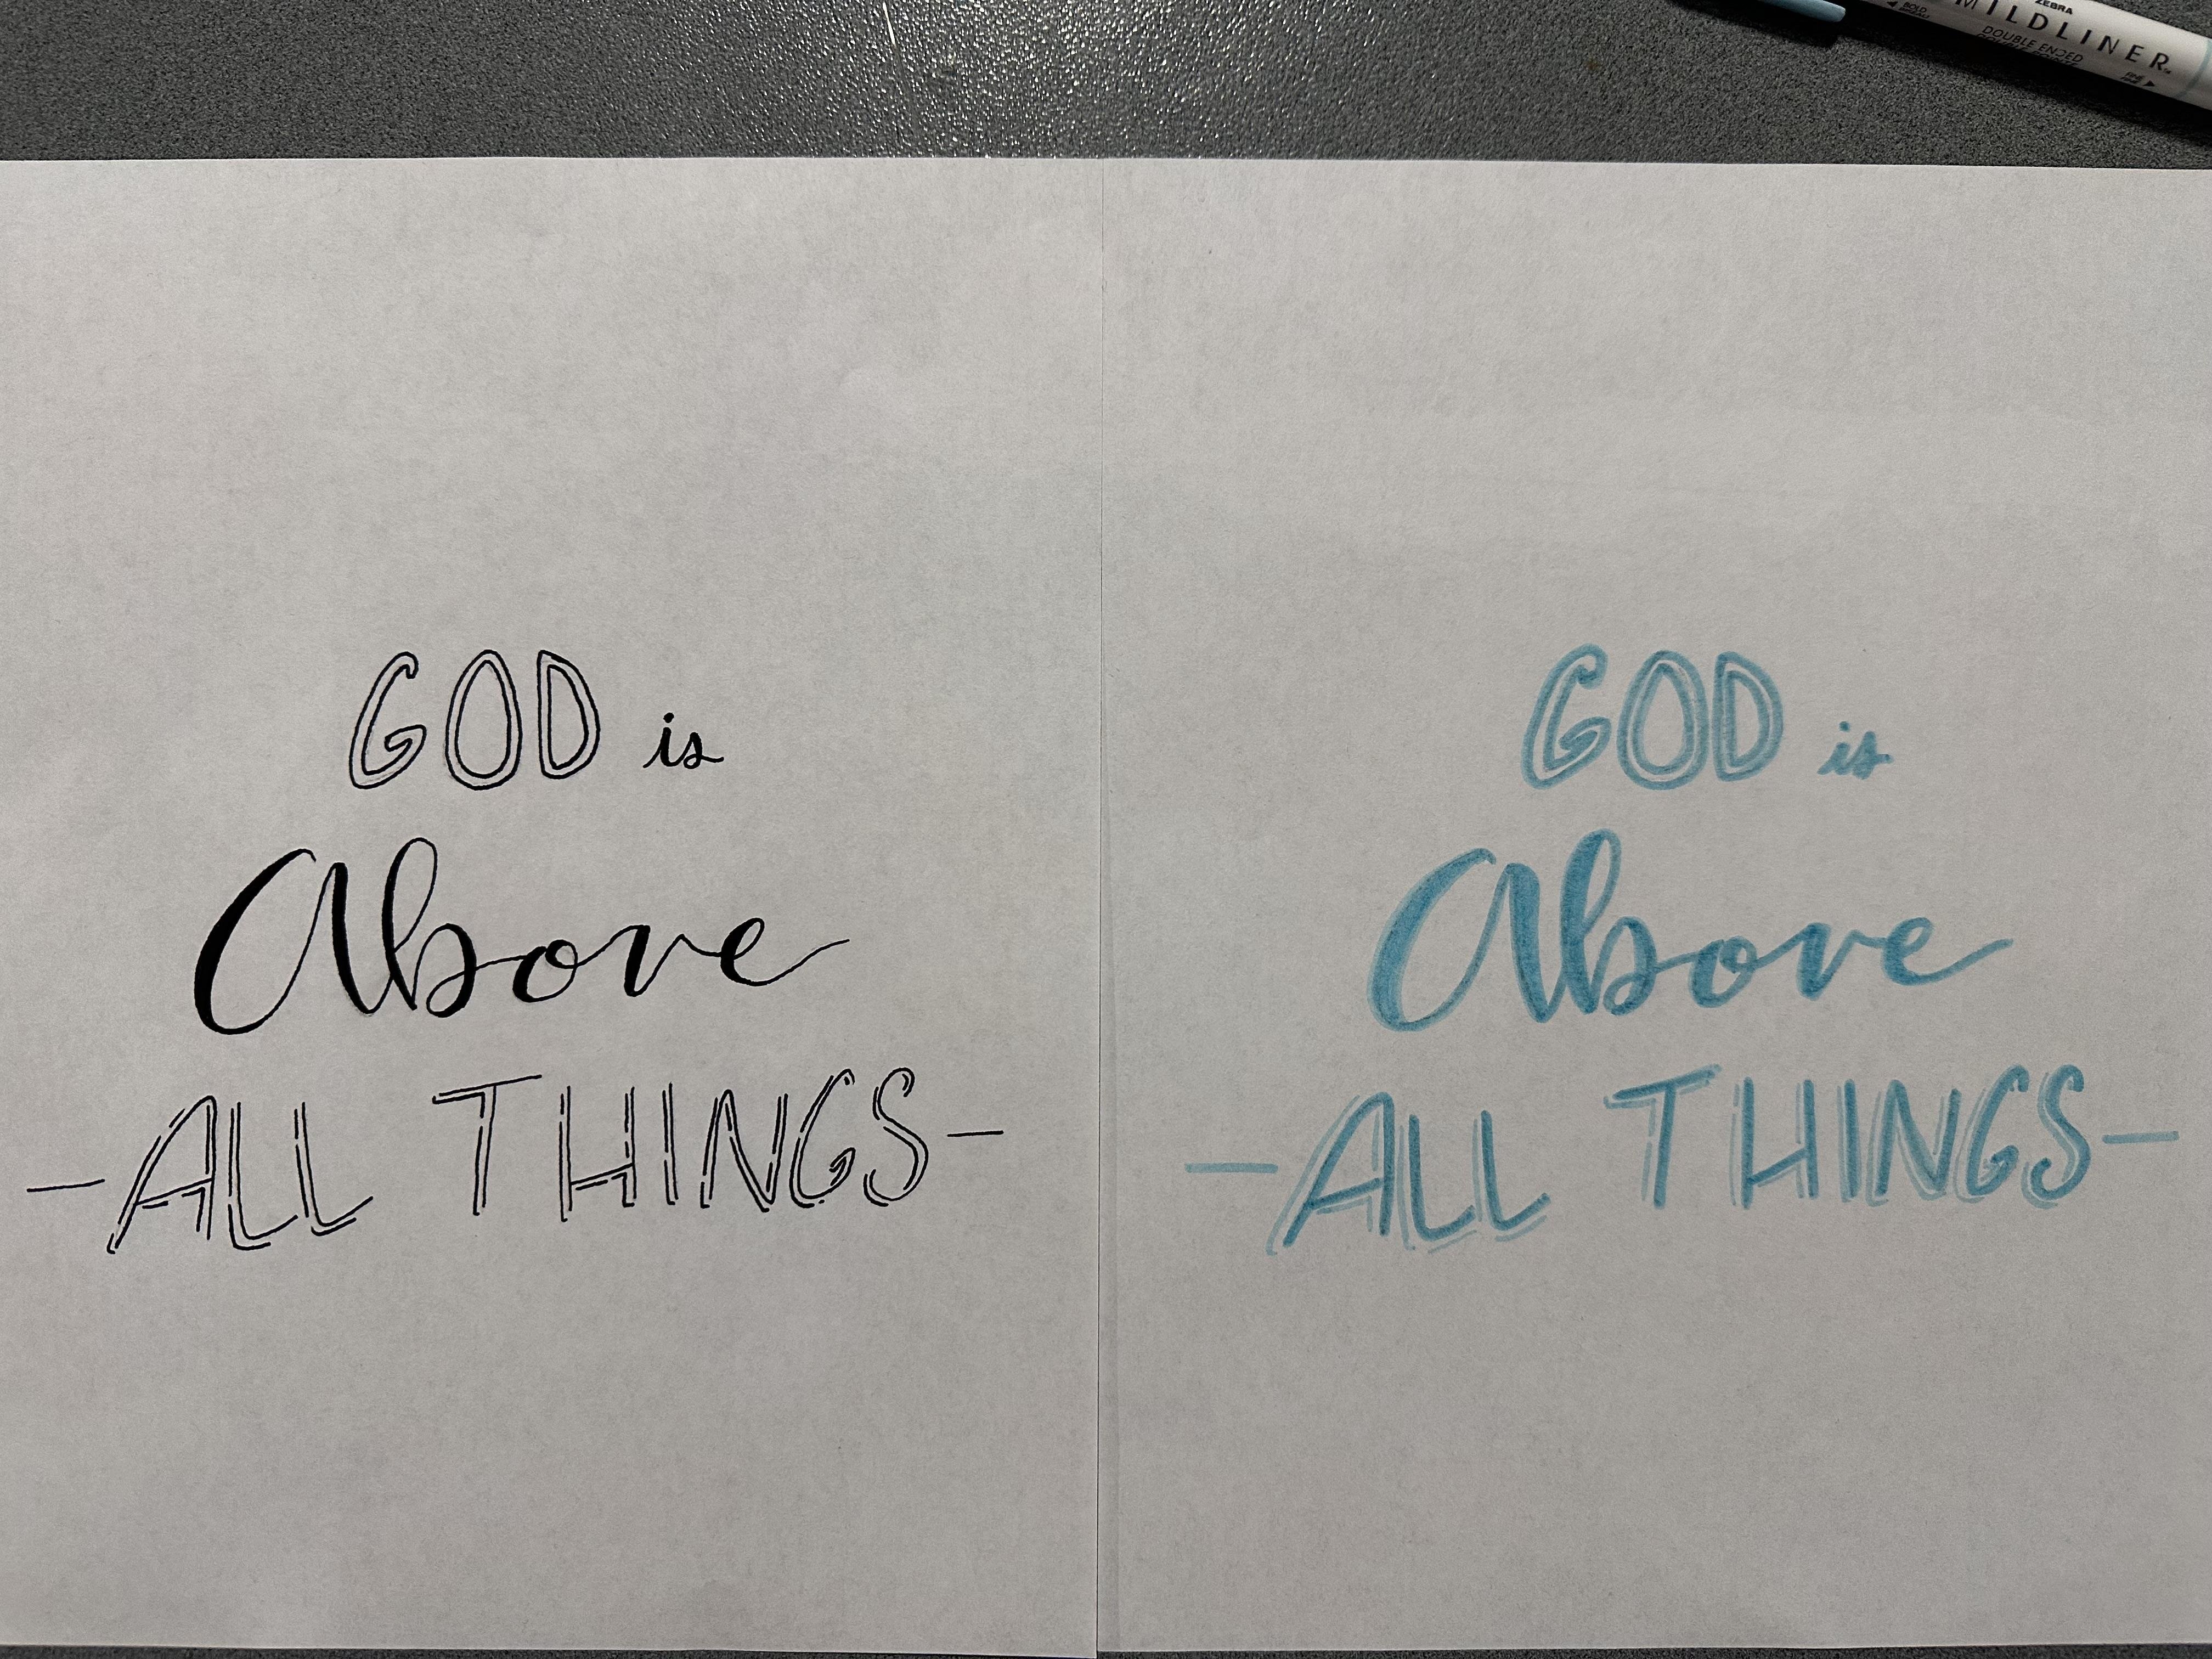 ZEBRA
MILDLINER
DOUBLE ENDED
GOD is
Above
-ALL THINGS-
GOD is
Above
-ALL THINGS-